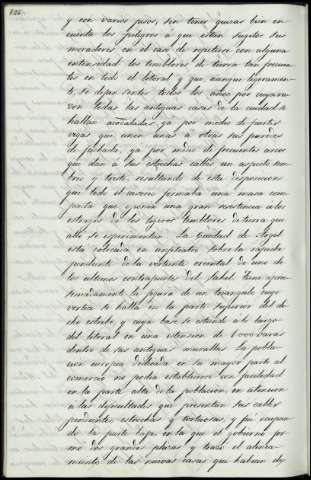 826.
y con varios pisos, sin tener quizas bien en
cuenta los peligros á que estan sujetos sus
moradores en el caso de repetirse con alguna
intensidad los temblores de tierra tan frecuen
tes en todo el litoral y que, aunque ligeramen-
te, se dejan sentir todos los años por cuya ra-
zon todas las antiguas casas de la ciudad se
hallan acodaladas ya por medio de fuertes
vigas que unen unas á otras sus paredes
de fachada, yá por medio de frecuentes arcos
que dán á las estrechas calles un aspecto som-
brio y triste, resultando de esta disposicion
que todo el caserio formaba una masa com-
pacta que oponia una gran resistencia á los
estragos de los ligeros temblores de tierra que
alli se esperimentan. La Ciudad de Argel
esta colocada en anfiteatro sobre la rápida
pendiente de la vertiente oriental de uno de
los ultimos contrafuertes del Sahel. Tiene aprox-
simadamente la figura de un triangulo cuyo
vertice se halla en la parte superior del di-
cho estribo, y cuya base se estiende á lo largo
del litoral en una estension de 1000 varas
dentro de sus antiguas murallas. La pobla-
cion europea dedicada en su mayor parte al
comercio no podia establecerse con facilidad
en la parte alta de la poblacion, en atencion
á las dificultades que presentan sus calles
pendientes estrechas y tortuosas, y fué ocupan-
do la parte baja en la que el gobierno for-
mó dos grandes plazas y trazó el alinea-
miento de las nuevas casas que habian de